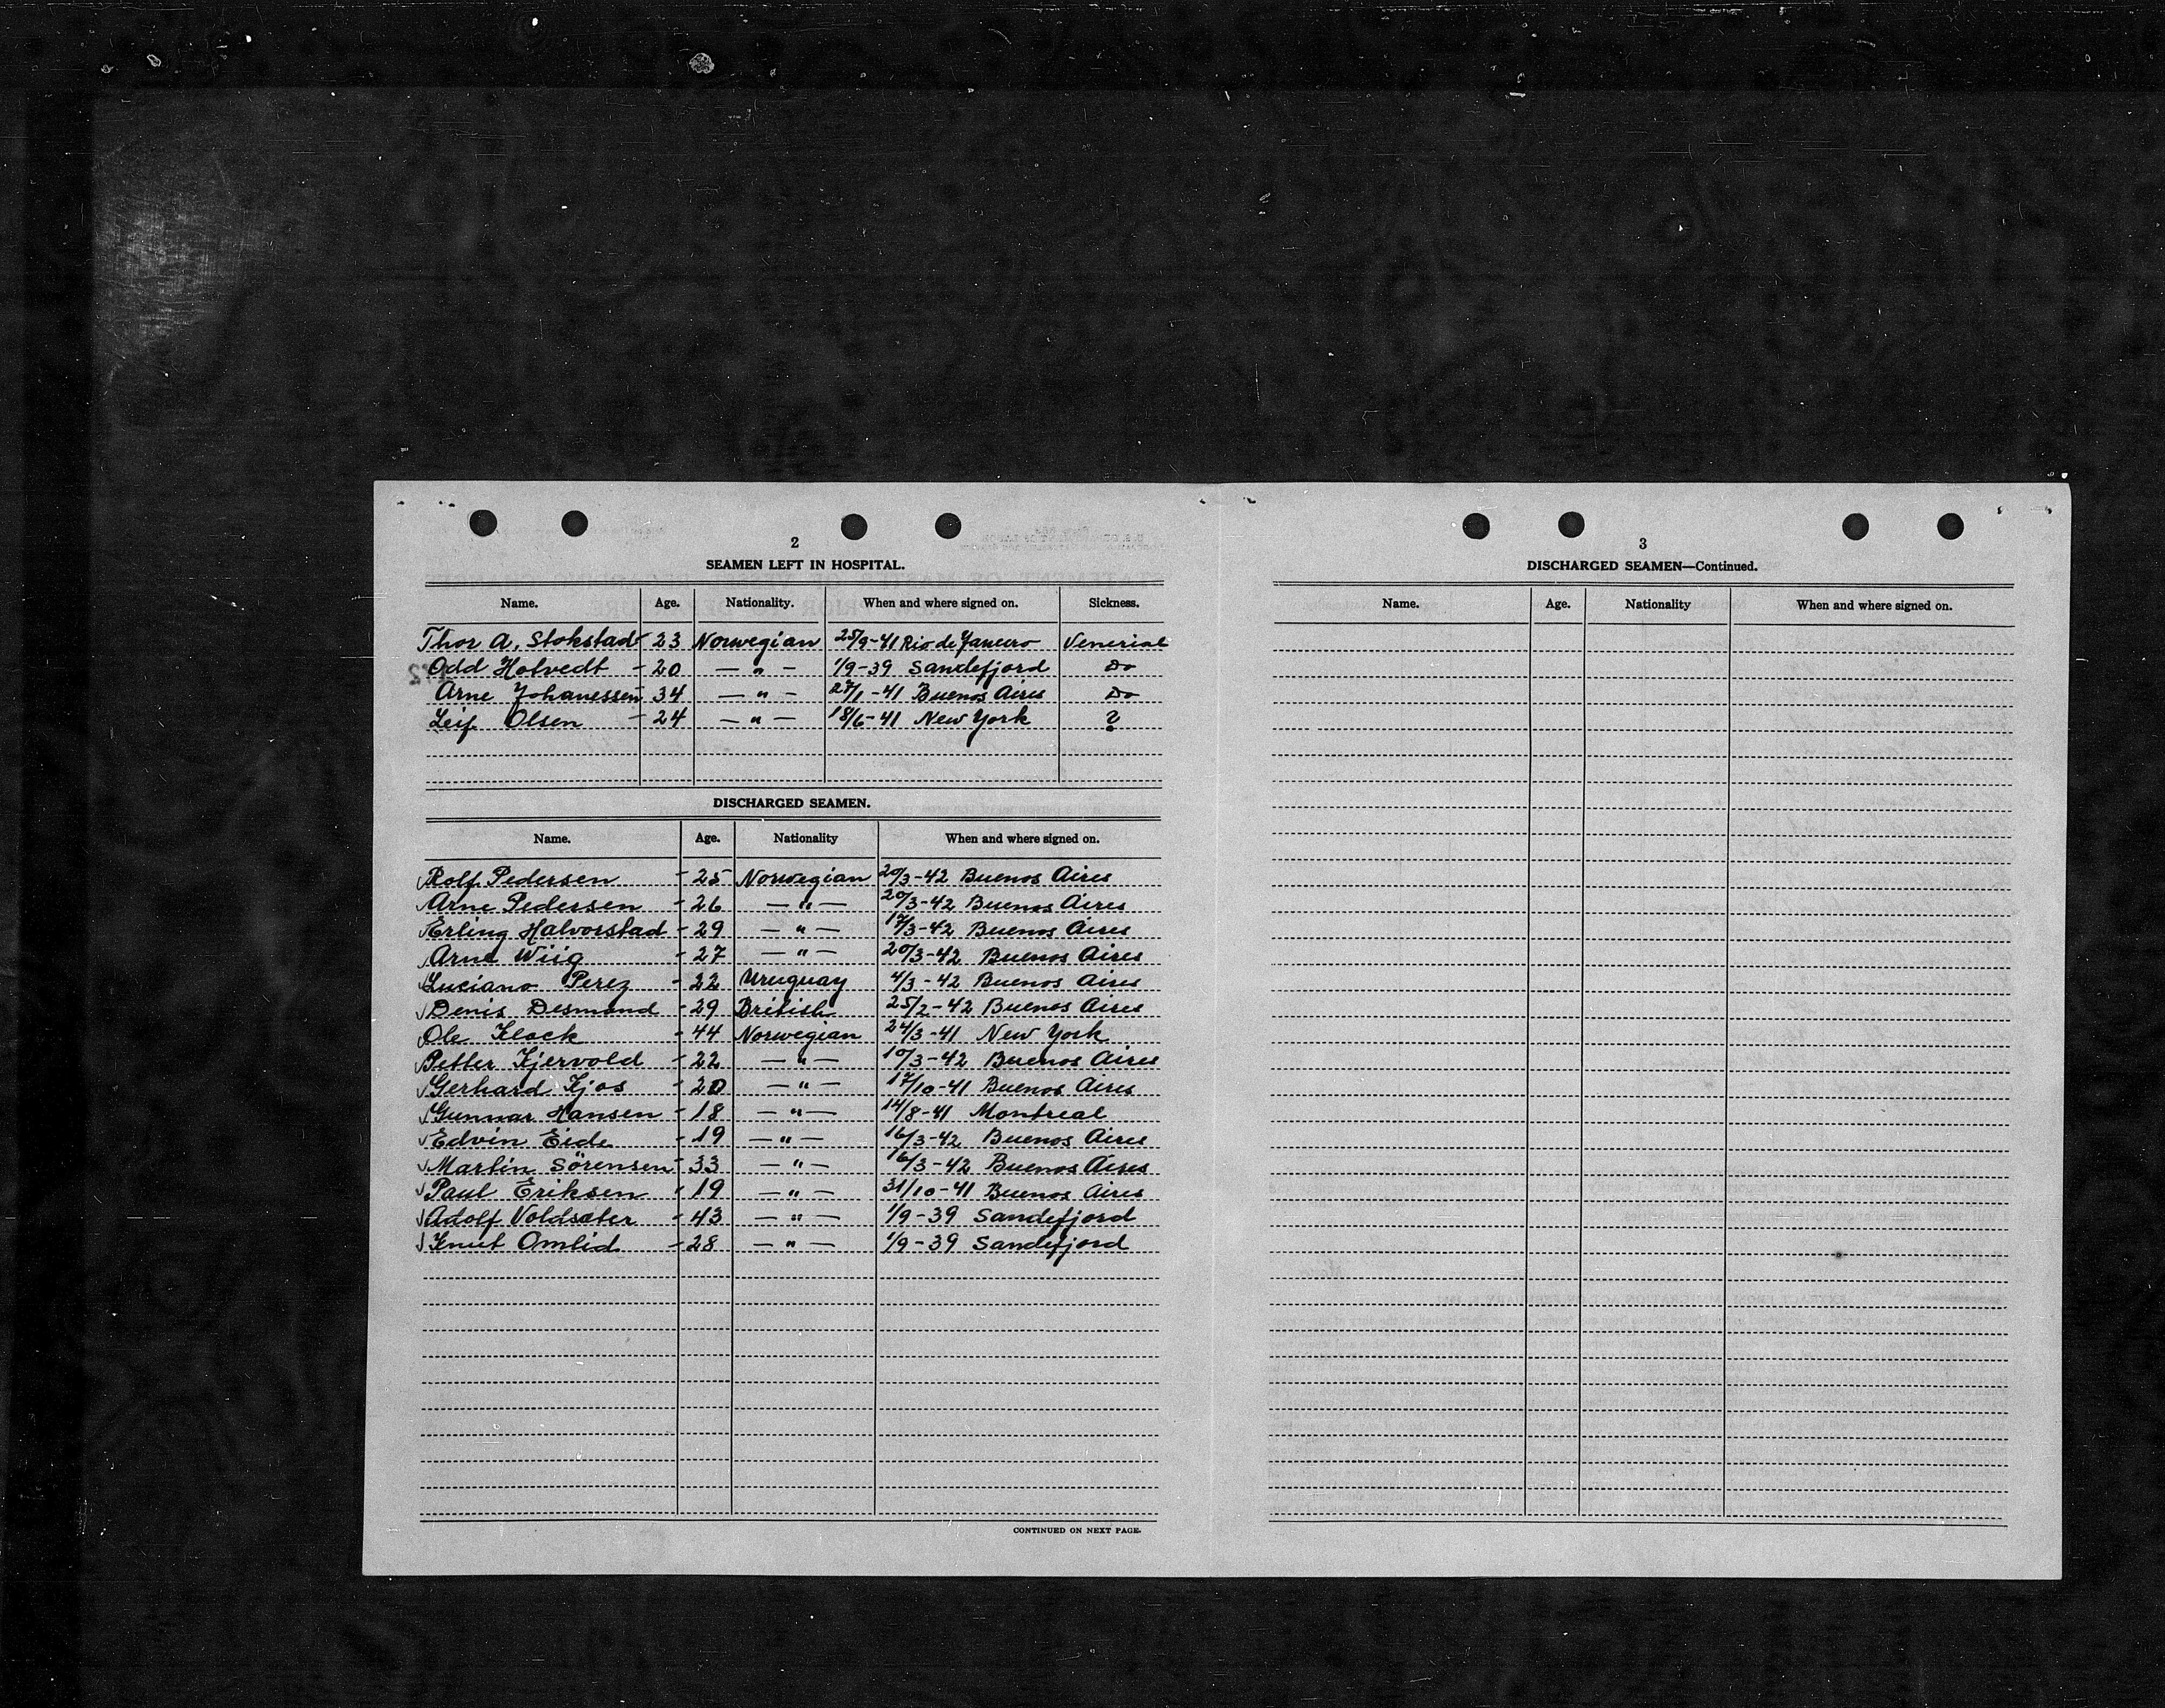 2
SEAMEN LEFT IN HOSPITAL.
Name. Age. Nationality. When and where signed on. Sickness.
Thor A. Stokstad - 23 Norwegian 25/9-41 Rio de Janeiro Venerial
Odd Hotvedt - 20 — " — 1/9-39 Sandefjord Do
Arne Johanessen - 34 — " — 27/1-41 Buenos Aires Do
Leif Olsen - 24 — " — 18/6-41 New York ?
DISCHARGED SEAMEN.
Name. Age. Nationality When and where signed on.
✓ Rolf Pedersen - 25 Norwegian 20/3-42 Buenos Aires
✓ Arne Pedersen - 26 — " — 20/3-42 Buenos Aires
✓ Erling Halvorstad - 29 — " — 17/3-42 Buenos Aires
✓ Arne Wiig - 27 — " — 20/3-42 Buenos Aires
✓ Luciano Perez - 22 Uruguay 4/3-42 Buenos Aires
✓ Denis Desmond - 29 British 25/2-42 Buenos Aires
✓ Ole Klock - 44 Norwegian 24/3-41 New York
✓ Petter Kjervold - 22 — " — 10/3-42 Buenos Aires
✓ Gerhard Kjos - 20 — " — 17/10-41 Buenos Aires
✓ Gunnar Hansen - 18 — " — 14/8-41 Montreal
✓ Edvin Eide - 19 — " — 16/3-42 Buenos Aires
✓ Martin Sörensen - 33 — " — 16/3-42 Buenos Aires
✓ Paul Eriksen - 19 — " — 31/10-41 Buenos Aires
✓ Adolf Voldsæter - 43 — " — 1/9-39 Sandefjord
✓ Knut Omlid - 28 — " — 1/9-39 Sandefjord
CONTINUED ON NEXT PAGE.
3
DISCHARGED SEAMEN—Continued.
Name. Age. Nationality When and where signed on.